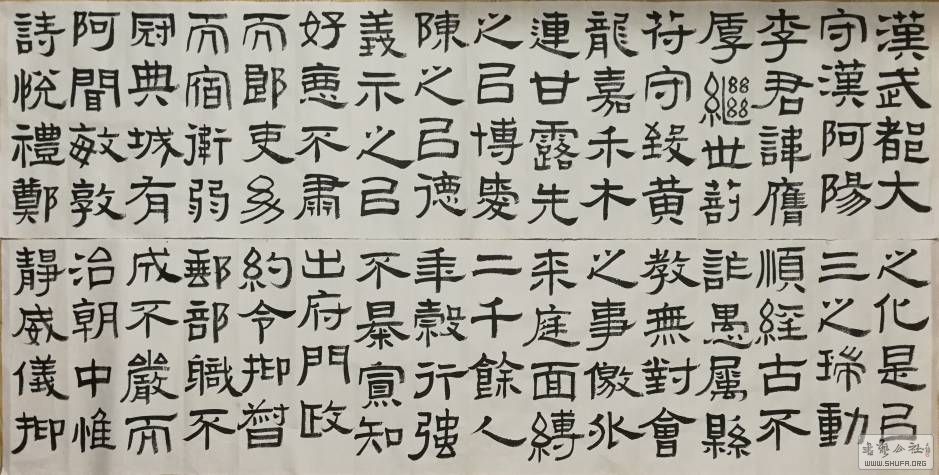 漢武都大
守漢阿陽
李君諱膺
厚繼世剖
符守致黃
龍嘉禾木
連甘露先
之以博愛
陳之以德
義示之以
好惡不肅
而郎吏幼
而宿衛弱
冠典城有
阿閒敏敦
詩悅禮鄭
之化是以
三之瑞動
順經古不
詐愚屬縣
教無對會
之事徼外
來庭面縛
二千餘人
年穀行強
不暴寡知
出府門政
約令抑督
郵部職不
成不嚴而
治朝中惟
靜威儀抑
書法公社
WWW.SHUFA.ORG